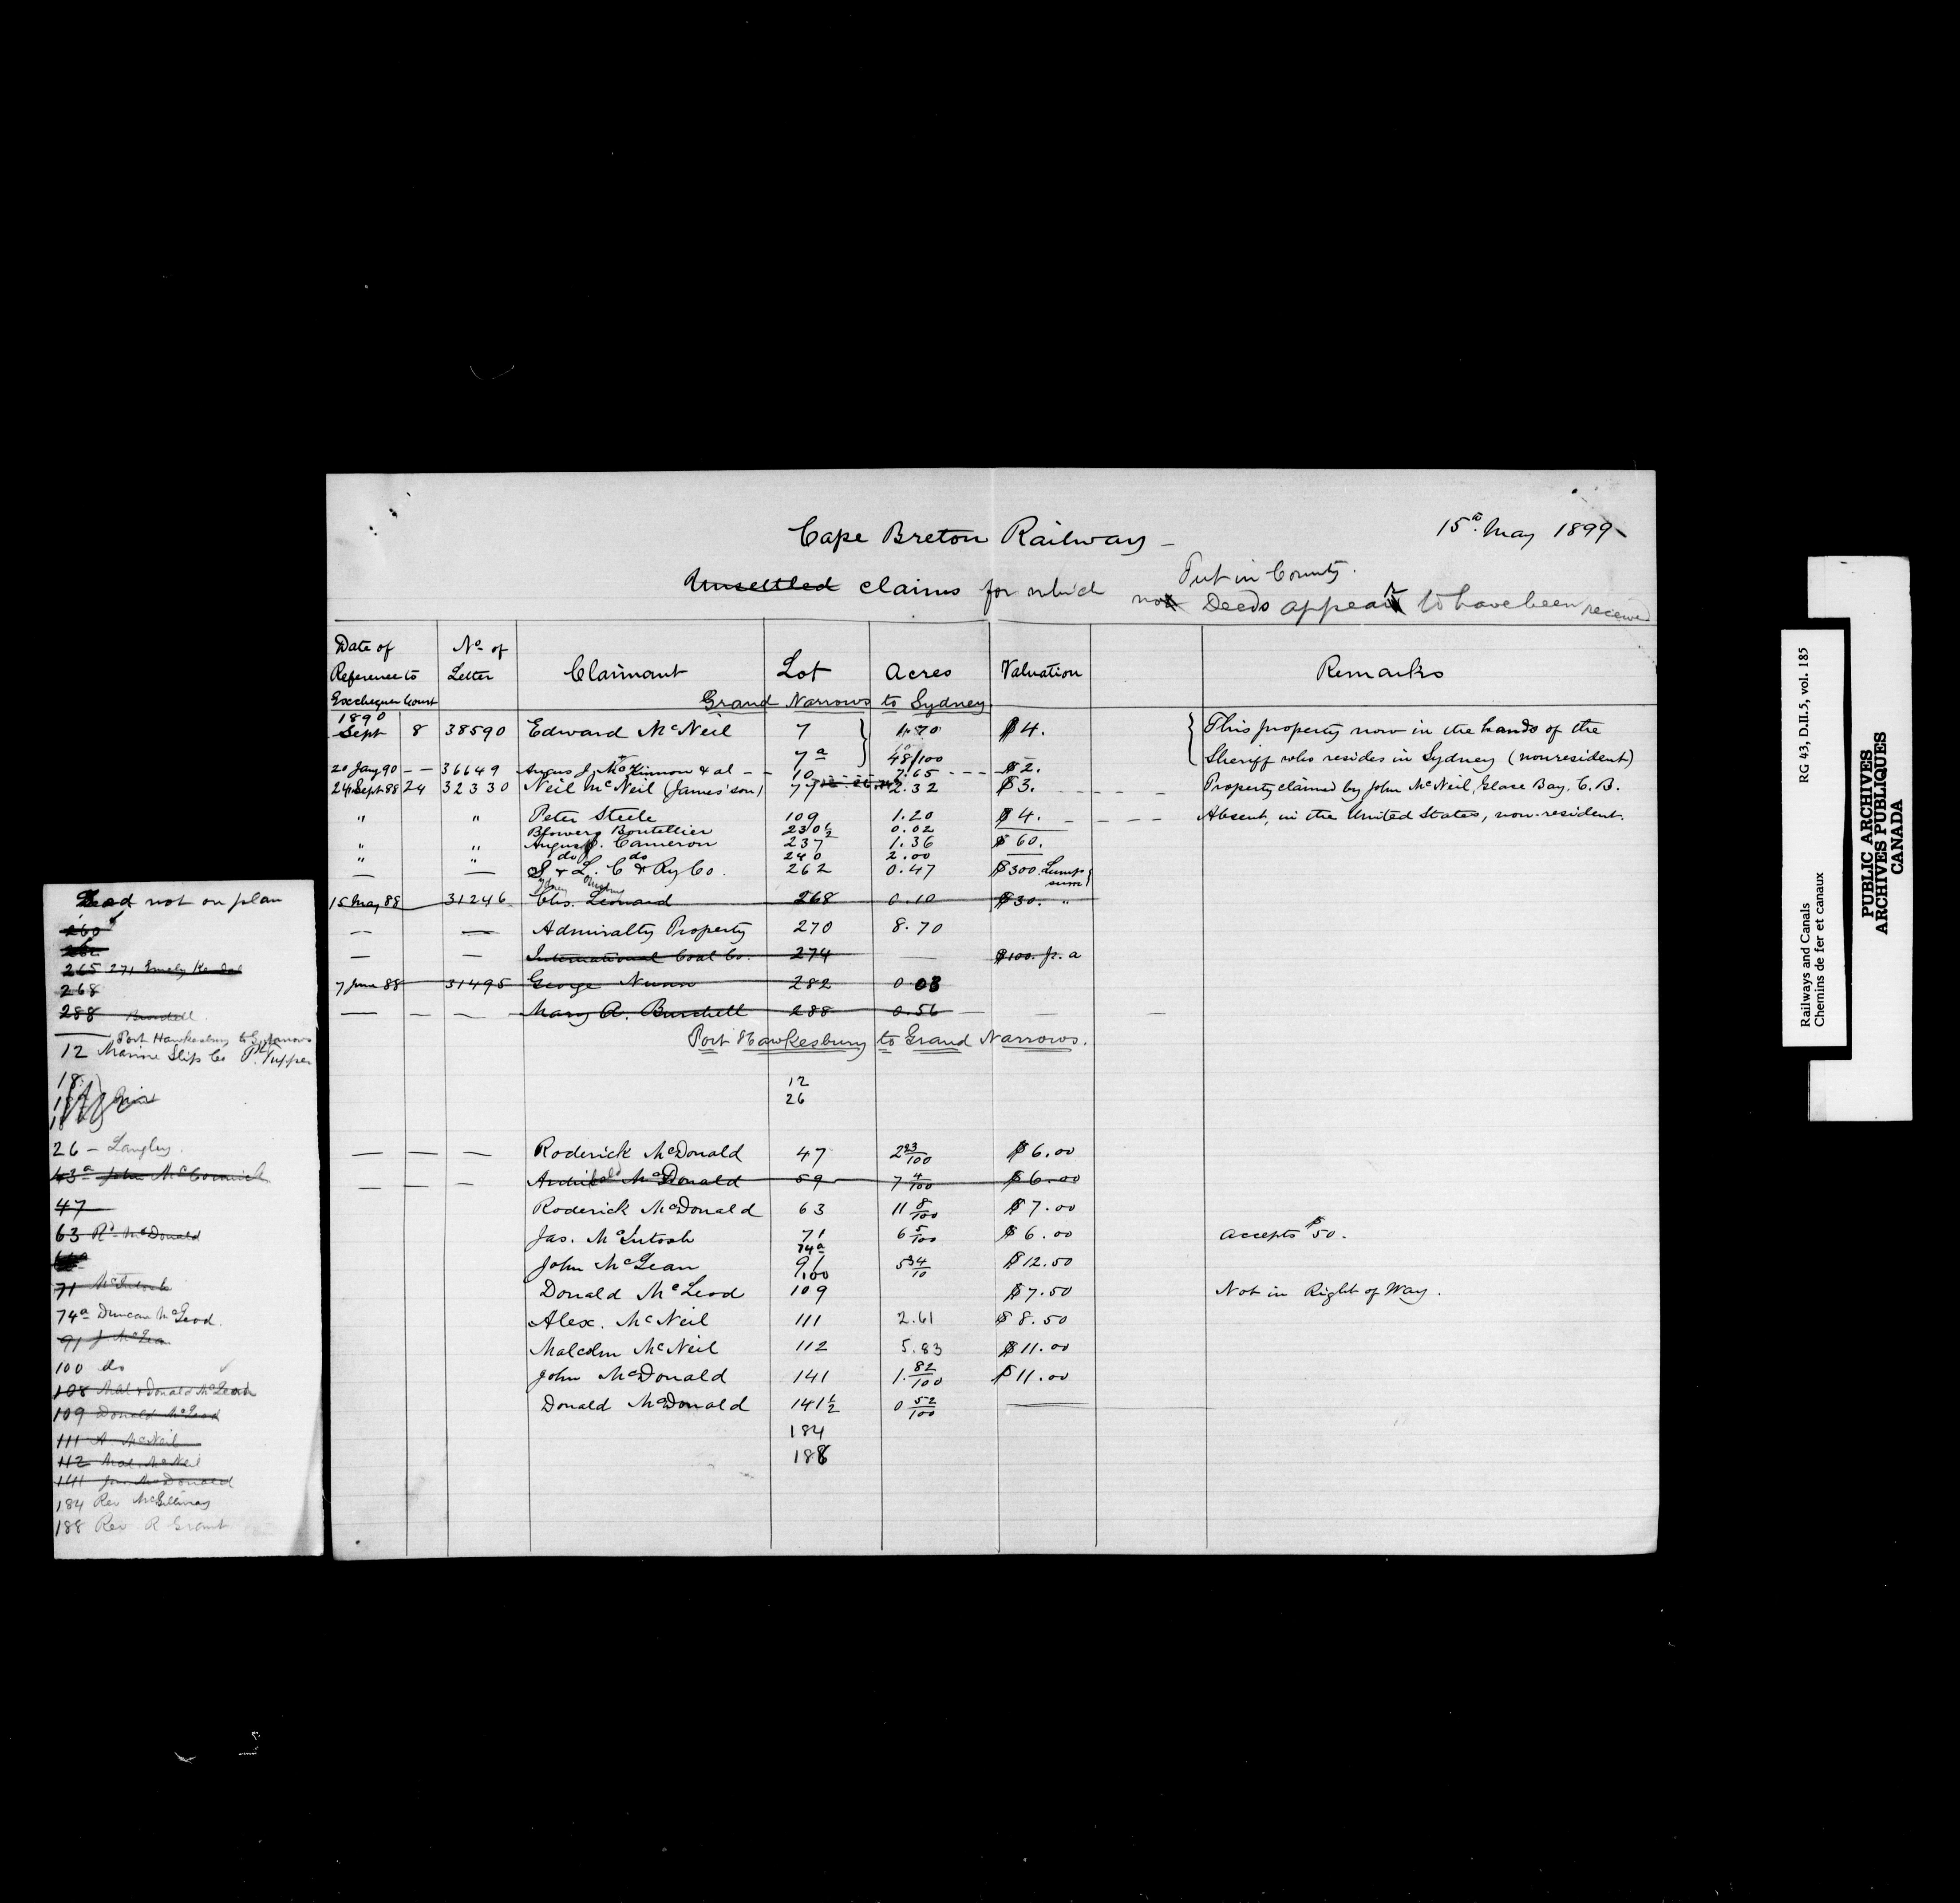 Cape Breton Railway
15th May 1899
Unsettled claims for which
Put in County.
no Deeds appear to have been received
Date of Reference to Exchequer Court
No. of Letter
Claimant
Lot
Acres
Valuation
Remarks
Grand Narrows to Sydney
1890
Sept 8 38590 Edward McNeil 7 1.70 $4. This property now in the hands of the
7a 48/100 Sheriff who resides in Sydney (nonresident)
20 Jany 90 - - 36649 Angus J. McKinnon & al - - 10 7.65 - - - $2.
24 Sept 88 24 32330 Neil McNeil (James' son) 77 2.32 $3. - - - Property claimed by John McNeil, Glace Bay. C.B.
" " Peter Steele 109 1.20 $4. - - - - Absent, in the United States, non-resident.
Boutellier 230½ 0.02
" " Angus Cameron 237 1.36 $60.
" " do do 240 2.00
— — S & L. C & Ry Co. 262 0.47 $300. Lump sum
Sydney Louisburg
15 May 88 31246 Chs. Leonard 268 0.10 $30. "
-- — Admiralty Property 270 8.70
— — International Coal Co. 274 — $100. p. a
7 June 88 31495 George Nunn 282 0.03
— — — Mary A. Burchell 288 0.56 — —
Port Hawkesbury to Grand Narrows.
12
26
— — — Roderick McDonald 47 2 23/100 $6.00
— — — Archibald McDonald 59 7 4/100 $6.00
Roderick McDonald 63 11 8/100 $7.00
Jas. McIntosh 71 6 5/100 $6.00 accepts $50.
74a
John McLean 91 5 34/10 $12.50
100
Donald McLeod 109 $7.50 Not in Right of Way.
Alex. McNeil 111 2.61 $8.50
Malcolm McNeil 112 5.83 $11.00
John McDonald 141 1. 82/100 $11.00
Donald McDonald 141½ 0 52/100 —
184
188
not on plan
260
265 271 Emely Kendal
268
288 Burchell
Port Hawkesbury to G. Narrows
12 Marine Slip Co Pt Tupper
18
26 - Langley.
43a John McCormick
47
63 Rd McDonald
71 McIntosh
74a Duncan McLeod.
91 J McLean
100 do
108 Mal & Donald McLeod
109 Donald McLeod
111 A. McNeil
112 Mal. McNeil
141 Jno McDonald
184 Rev McGillivray
188 Rev. R Grant
RG 43, D.II.5, vol. 185
Railways and Canals
Chemins de fer et canaux
PUBLIC ARCHIVES
ARCHIVES PUBLIQUES
CANADA